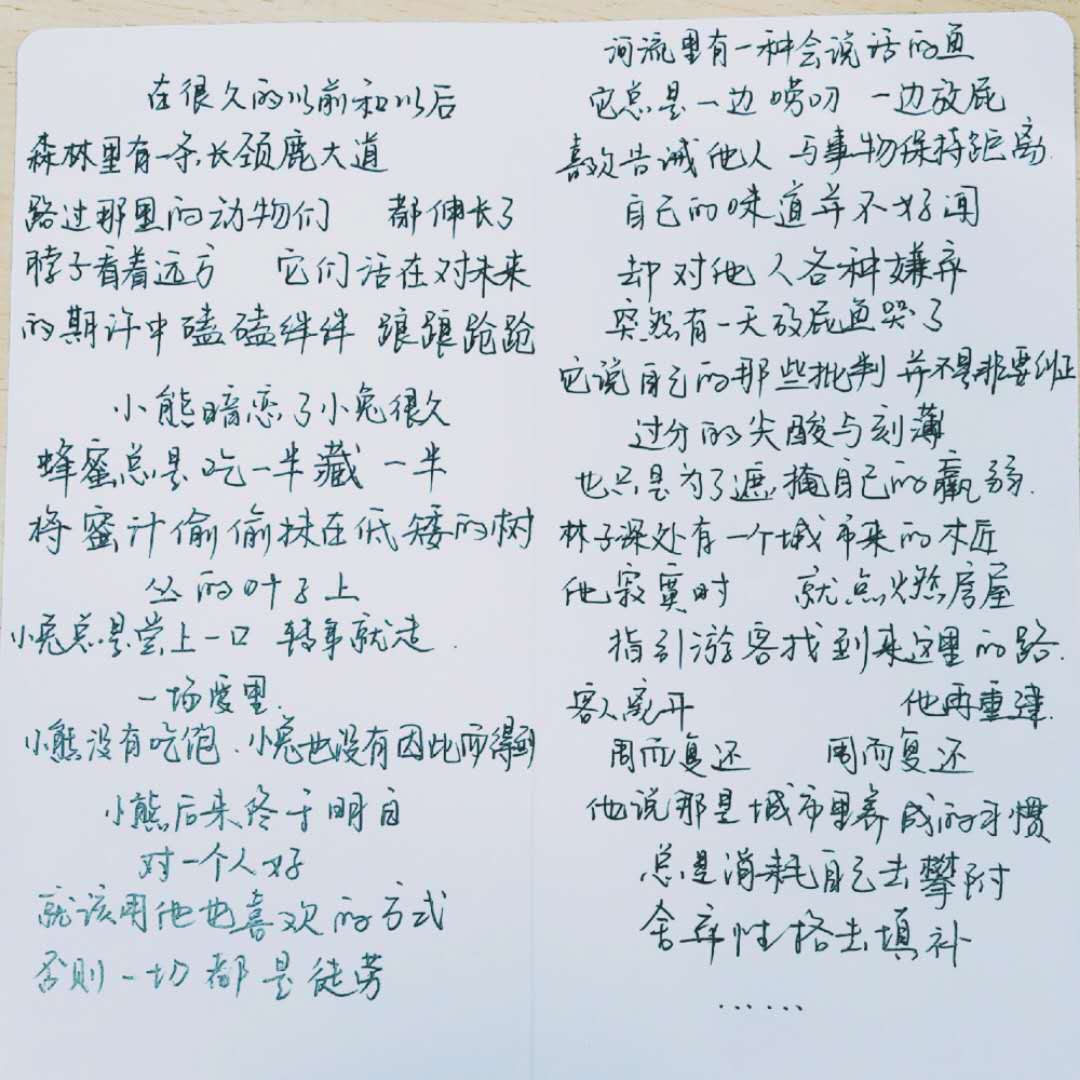 在很久的以前和以后
森林里有一条长颈鹿大道
路过那里的动物们 都伸长了
脖子看着远方 它们活在对未来
的期许中磕磕绊绊 踉踉跄跄
小熊暗恋了小兔很久
蜂蜜总是吃一半藏一半
将蜜汁偷偷抹在低矮的树
丛的叶子上
小兔总是尝上一口 转身就走.
一场度里.
小熊没有吃饱.小兔也没有因此而得到
小熊后来终于明白
对一个人好
就该用他也喜欢的方式
否则一切都是徒劳
河流里有一种会说话的鱼
它总是一边唠叨 一边放屁
喜欢告诫他人 与事物保持距离.
自己的味道并不好闻
却对他人各种嫌弃
突然有一天放屁鱼哭了
它说自己的那些批判 并不是非要纠正
过分的尖酸与刻薄
也只是为了遮掩自己的羸弱.
林子深处有一个城市来的木匠
他寂寞时 就点火燃房屋
指引游客找到来这里的路.
客人离开 他再重建.
周而复还 周而复还
他说那是城市里养成的习惯
总是消耗自己去攀附
舍弃性格去填补
……